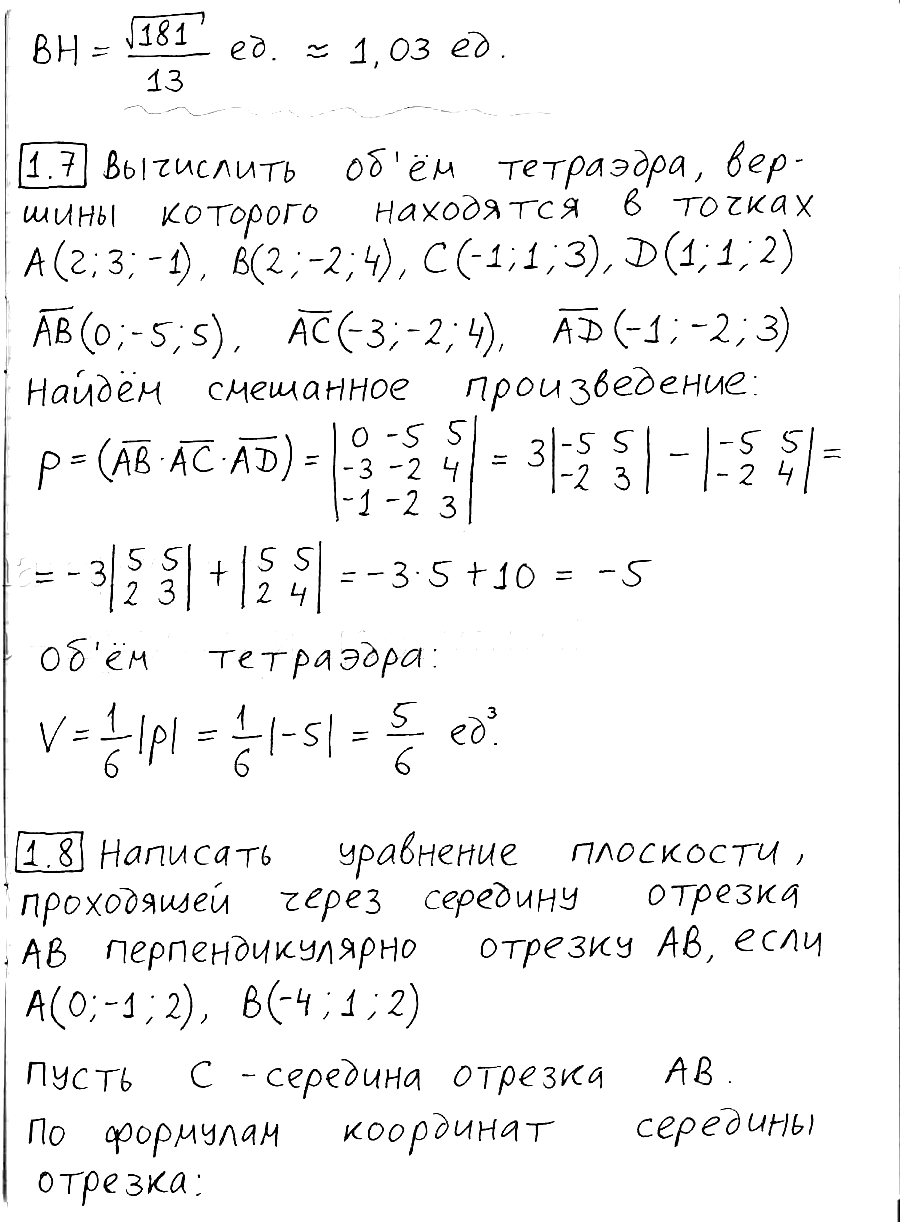 BH = √181/13 ед. ≈ 1,03 ед.
1.7 Вычислить об'ём тетраэдра, вер-
шины которого находятся в точках
A(2;3;-1), B(2;-2;4), C(-1;1;3), D(1;1;2)
AB(0;-5;5), AC(-3;-2;4), AD(-1;-2;3)
Найдём смешанное произведение:
p = (AB·AC·AD) = |0 -5 5; -3 -2 4; -1 -2 3| = 3|-5 5; -2 3| - |-5 5; -2 4| =
= -3|5 5; 2 3| + |5 5; 2 4| = -3·5 + 10 = -5
Об'ём тетраэдра:
V = 1/6 |p| = 1/6 |-5| = 5/6 ед³.
1.8 Написать уравнение плоскости,
проходящей через середину отрезка
AB перпендикулярно отрезку AB, если
A(0;-1;2), B(-4;1;2)
Пусть C - середина отрезка AB.
По формулам координат середины
отрезка: